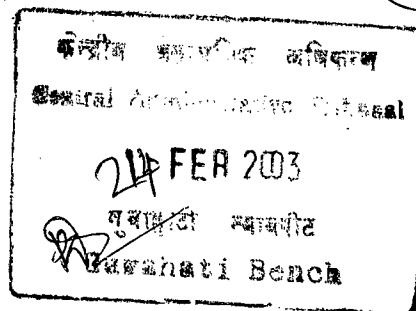 केन्द्रीय अधिकरण
Central Administrative Tribunal
24 FEB 2003
गुवाहाटी न्यायपीठ
Guwahati Bench